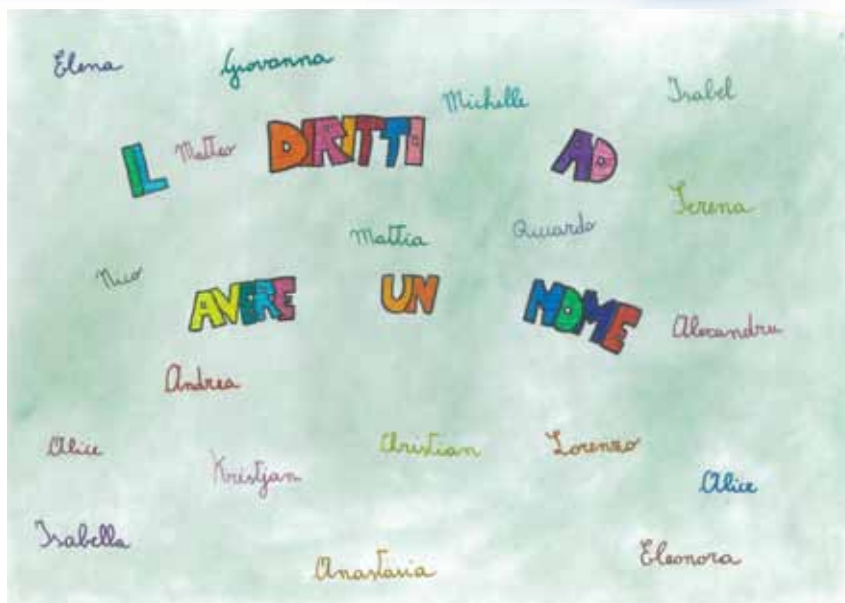 Elena Giovanna
Michelle Isabel
IL Matteo DIRITTO AD
Serena
Mattia Riccardo
Nico
AVERE UN NOME
Alexandru
Andrea
Alice Christian Lorenzo
Kristjan Alice
Isabella
Anastasia Eleonora